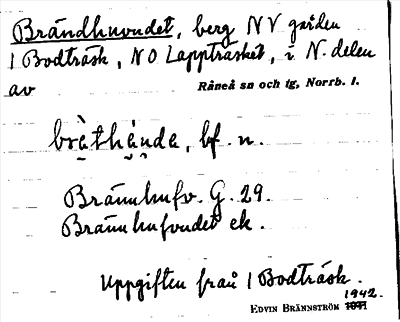 Brändhuvudet, berg NV gården
1 Bodträsk, NO Lappträsket, i N. delen
av Råneå sn och tg, Norrb. l.
brèthə̀nde, bf. n.
Brännhufv. G. 29.
Brännhufvudet ek.
Uppgiften från 1 Bodträsk.
1942.
EDVIN BRÄNNSTRÖM 1941